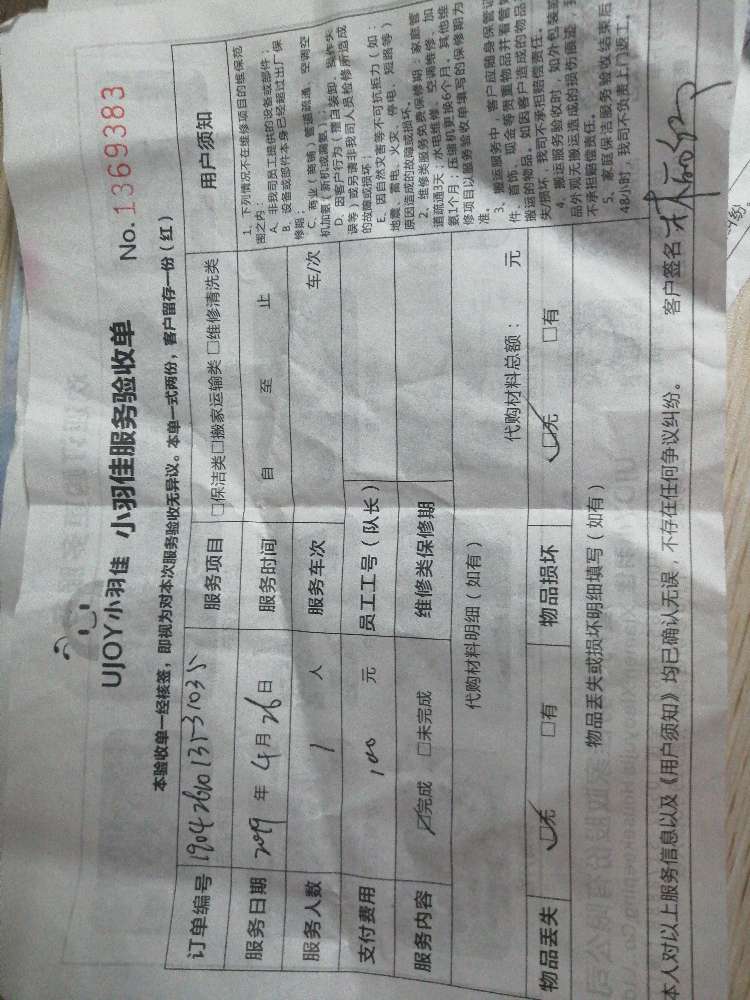 UJOY小羽佳 小羽佳服务验收单
No. 1369383
本验收单一经核签，即视为对本次服务验收无异议。本单一式两份，客户留存一份（红）
订单编号
服务项目 □保洁类□搬家运输类 □维修清洗类
用户须知
服务日期 2019 年 4 月 26 日
服务时间 自 至 止
服务人数 1 人
服务车次 车/次
支付费用 100 元
员工工号（队长）
服务内容 ☑完成 □未完成
维修类保修期
1、下列情况不在维修项目的维保范
围之内：
A、非我司员工提供的设备或部件；
B、设备或部件本身已经超过出厂保
修期；
C、商业（商铺）管道疏通、空调空
机加氨（新机或漏氨）；
D、因客户行为（擅自装卸、操作失
误等）或另请非我司人员检修所造成
的故障或损坏；
E、因自然灾害等不可抗拒力（如：
地震、雷电、火灾、停电、短路等）
原因造成的故障或损坏。
2、维修类服务免费保修期：家庭管
道疏通3天；水电维修、空调维修、加
氨1个月；压缩机更换6个月。其他维
修项目以服务验收单填写的保修期为
准。
3、搬运服务中，客户应随身保管证
件、首饰、现金等贵重物品并看管好
搬运的物品。如因客户造成的物品
失/损坏，我司不承担赔偿责任。
4、搬运服务验收时，如外包装或
品外观无搬运造成的损伤痕迹，我
不承担赔偿责任。
5、家庭保洁服务验收结束后
48小时，我司不负责上门返工。
代购材料明细（如有）
代购材料总额： 元
物品丢失 ☑无 □有
物品损坏 ☑无 □有
物品丢失或损坏明细填写（如有）
本人对以上服务信息以及《用户须知》均已确认无误，不存在任何争议纠纷。
客户签名